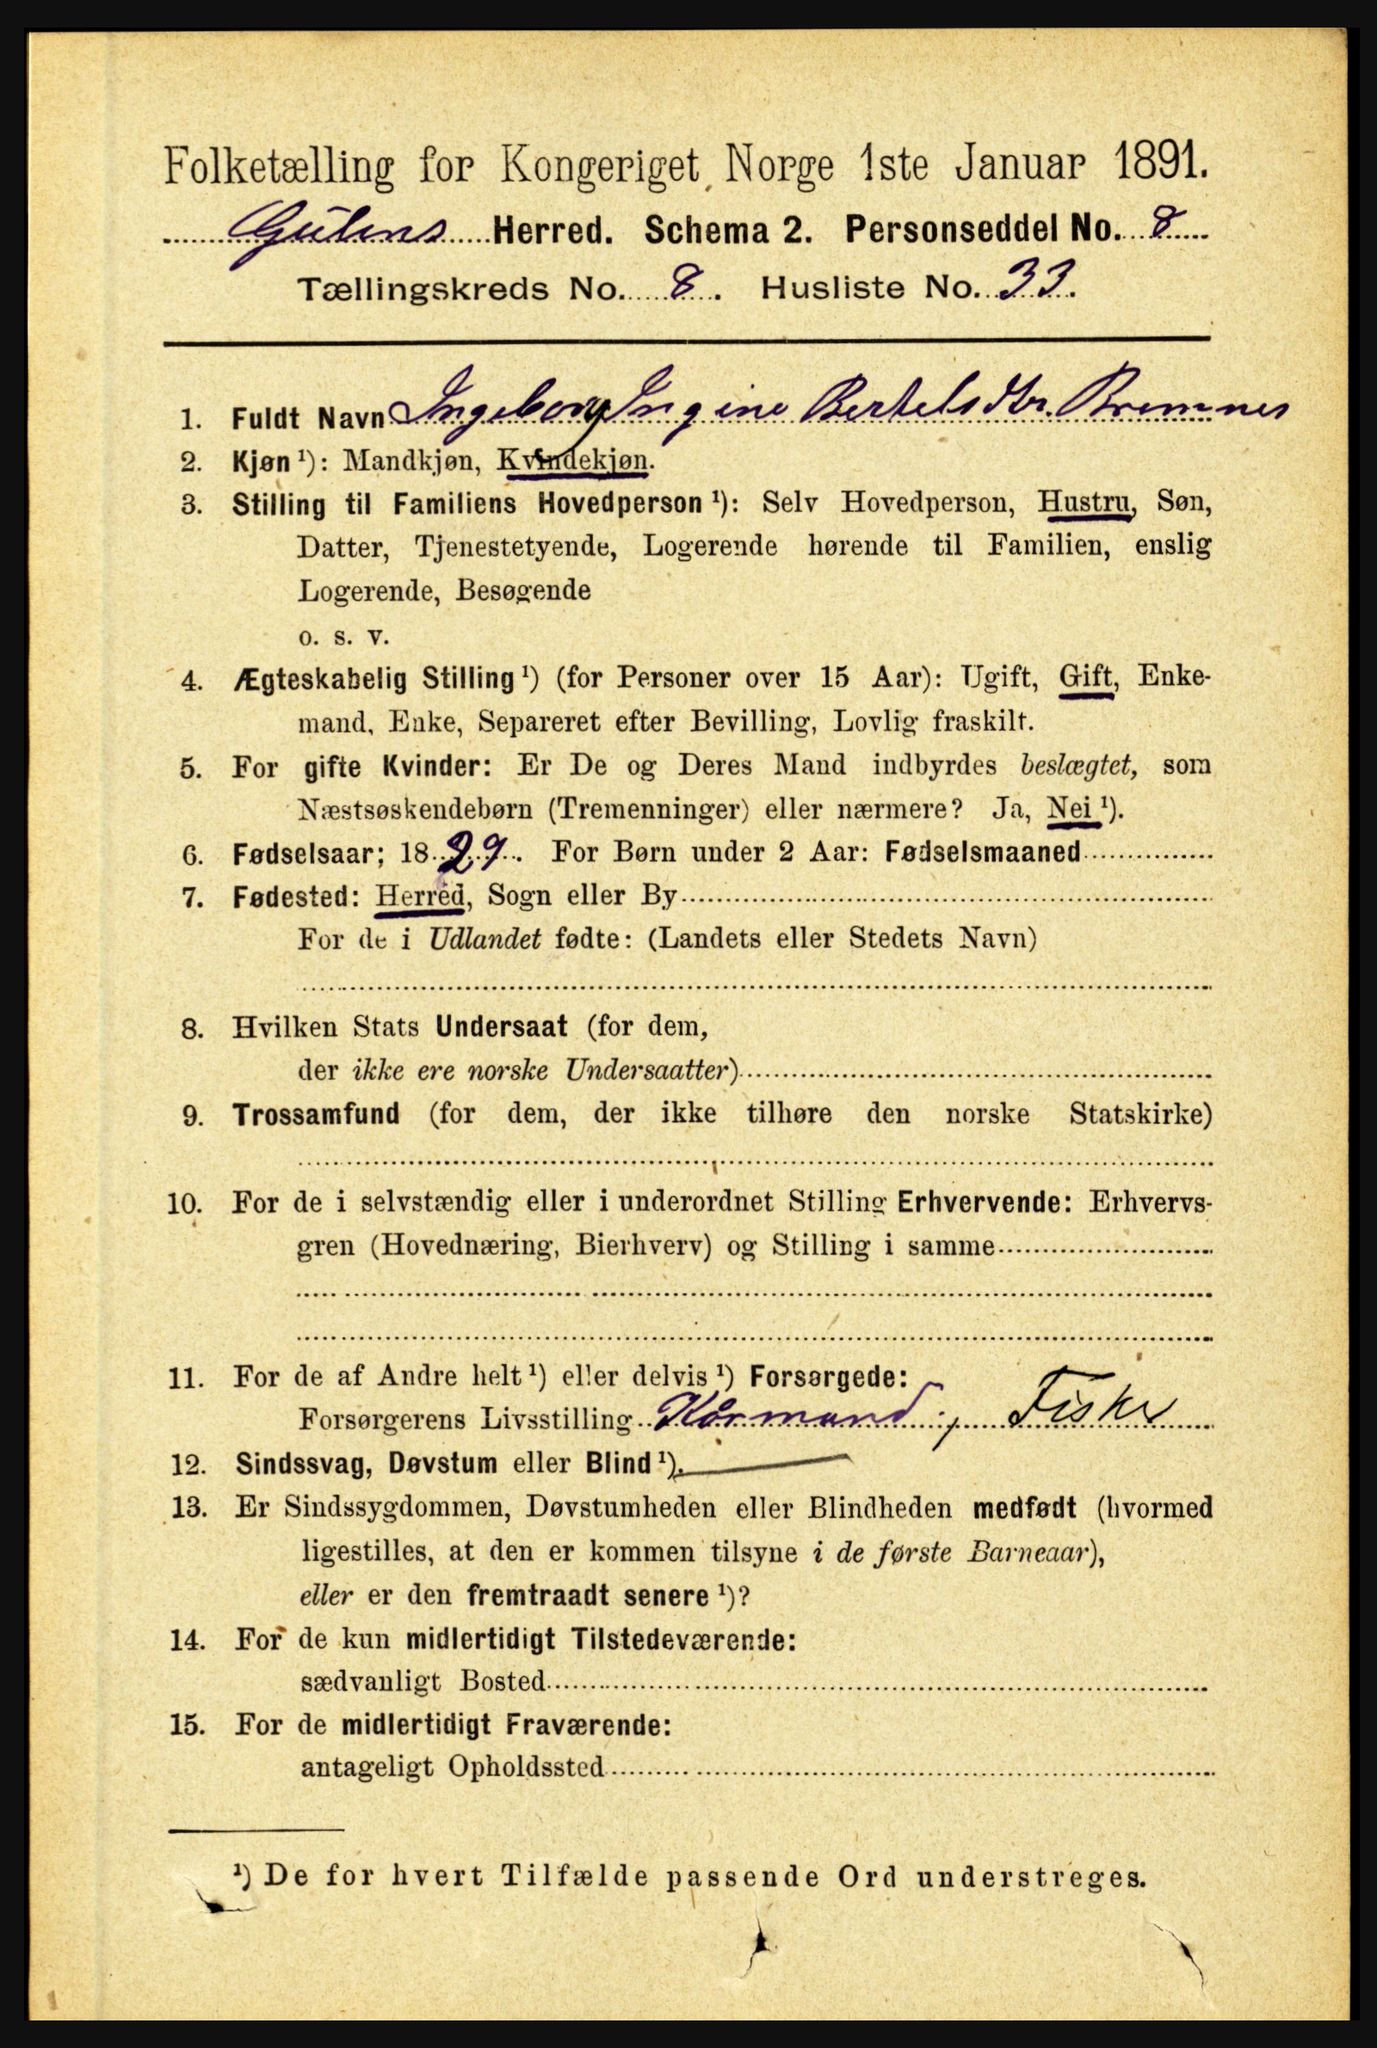 Folketælling for Kongeriget Norge 1ste Januar 1891.
Gulens Herred. Schema 2. Personseddel No. 8
Tællingskreds No. 8. Husliste No. 33.
1. Fuldt Navn Ingeborg Ingine Bertelsdtr. Bremnes
2. Kjøn ¹): Mandkjøn, Kvindekjøn.
3. Stilling til Familiens Hovedperson ¹): Selv Hovedperson, Hustru, Søn,
Datter, Tjenestetyende, Logerende hørende til Familien, enslig
Logerende, Besøgende
o. s. v.
4. Ægteskabelig Stilling ¹) (for Personer over 15 Aar): Ugift, Gift, Enke-
mand, Enke, Separeret efter Bevilling, Lovlig fraskilt.
5. For gifte Kvinder: Er De og Deres Mand indbyrdes beslægtet, som
Næstsøskendebørn (Tremenninger) eller nærmere? Ja, Nei ¹).
6. Fødselsaar; 1829. For Børn under 2 Aar: Fødselsmaaned
7. Fødested: Herred, Sogn eller By
For de i Udlandet fødte: (Landets eller Stedets Navn)
8. Hvilken Stats Undersaat (for dem,
der ikke ere norske Undersaatter)
9. Trossamfund (for dem, der ikke tilhøre den norske Statskirke)
10. For de i selvstændig eller i underordnet Stilling Erhvervende: Erhvervs-
gren (Hovednæring, Bierhverv) og Stilling i samme
11. For de af Andre helt ¹) eller delvis ¹) Forsørgede:
Forsørgerens Livsstilling Kårmand, Fisker
12. Sindssvag, Døvstum eller Blind ¹).
13. Er Sindssygdommen, Døvstumheden eller Blindheden medfødt (hvormed
ligestilles, at den er kommen tilsyne i de første Barneaar),
eller er den fremtraadt senere ¹)?
14. For de kun midlertidigt Tilstedeværende:
sædvanligt Bosted
15. For de midlertidigt Fraværende:
antageligt Opholdssted
¹) De for hvert Tilfælde passende Ord understreges.